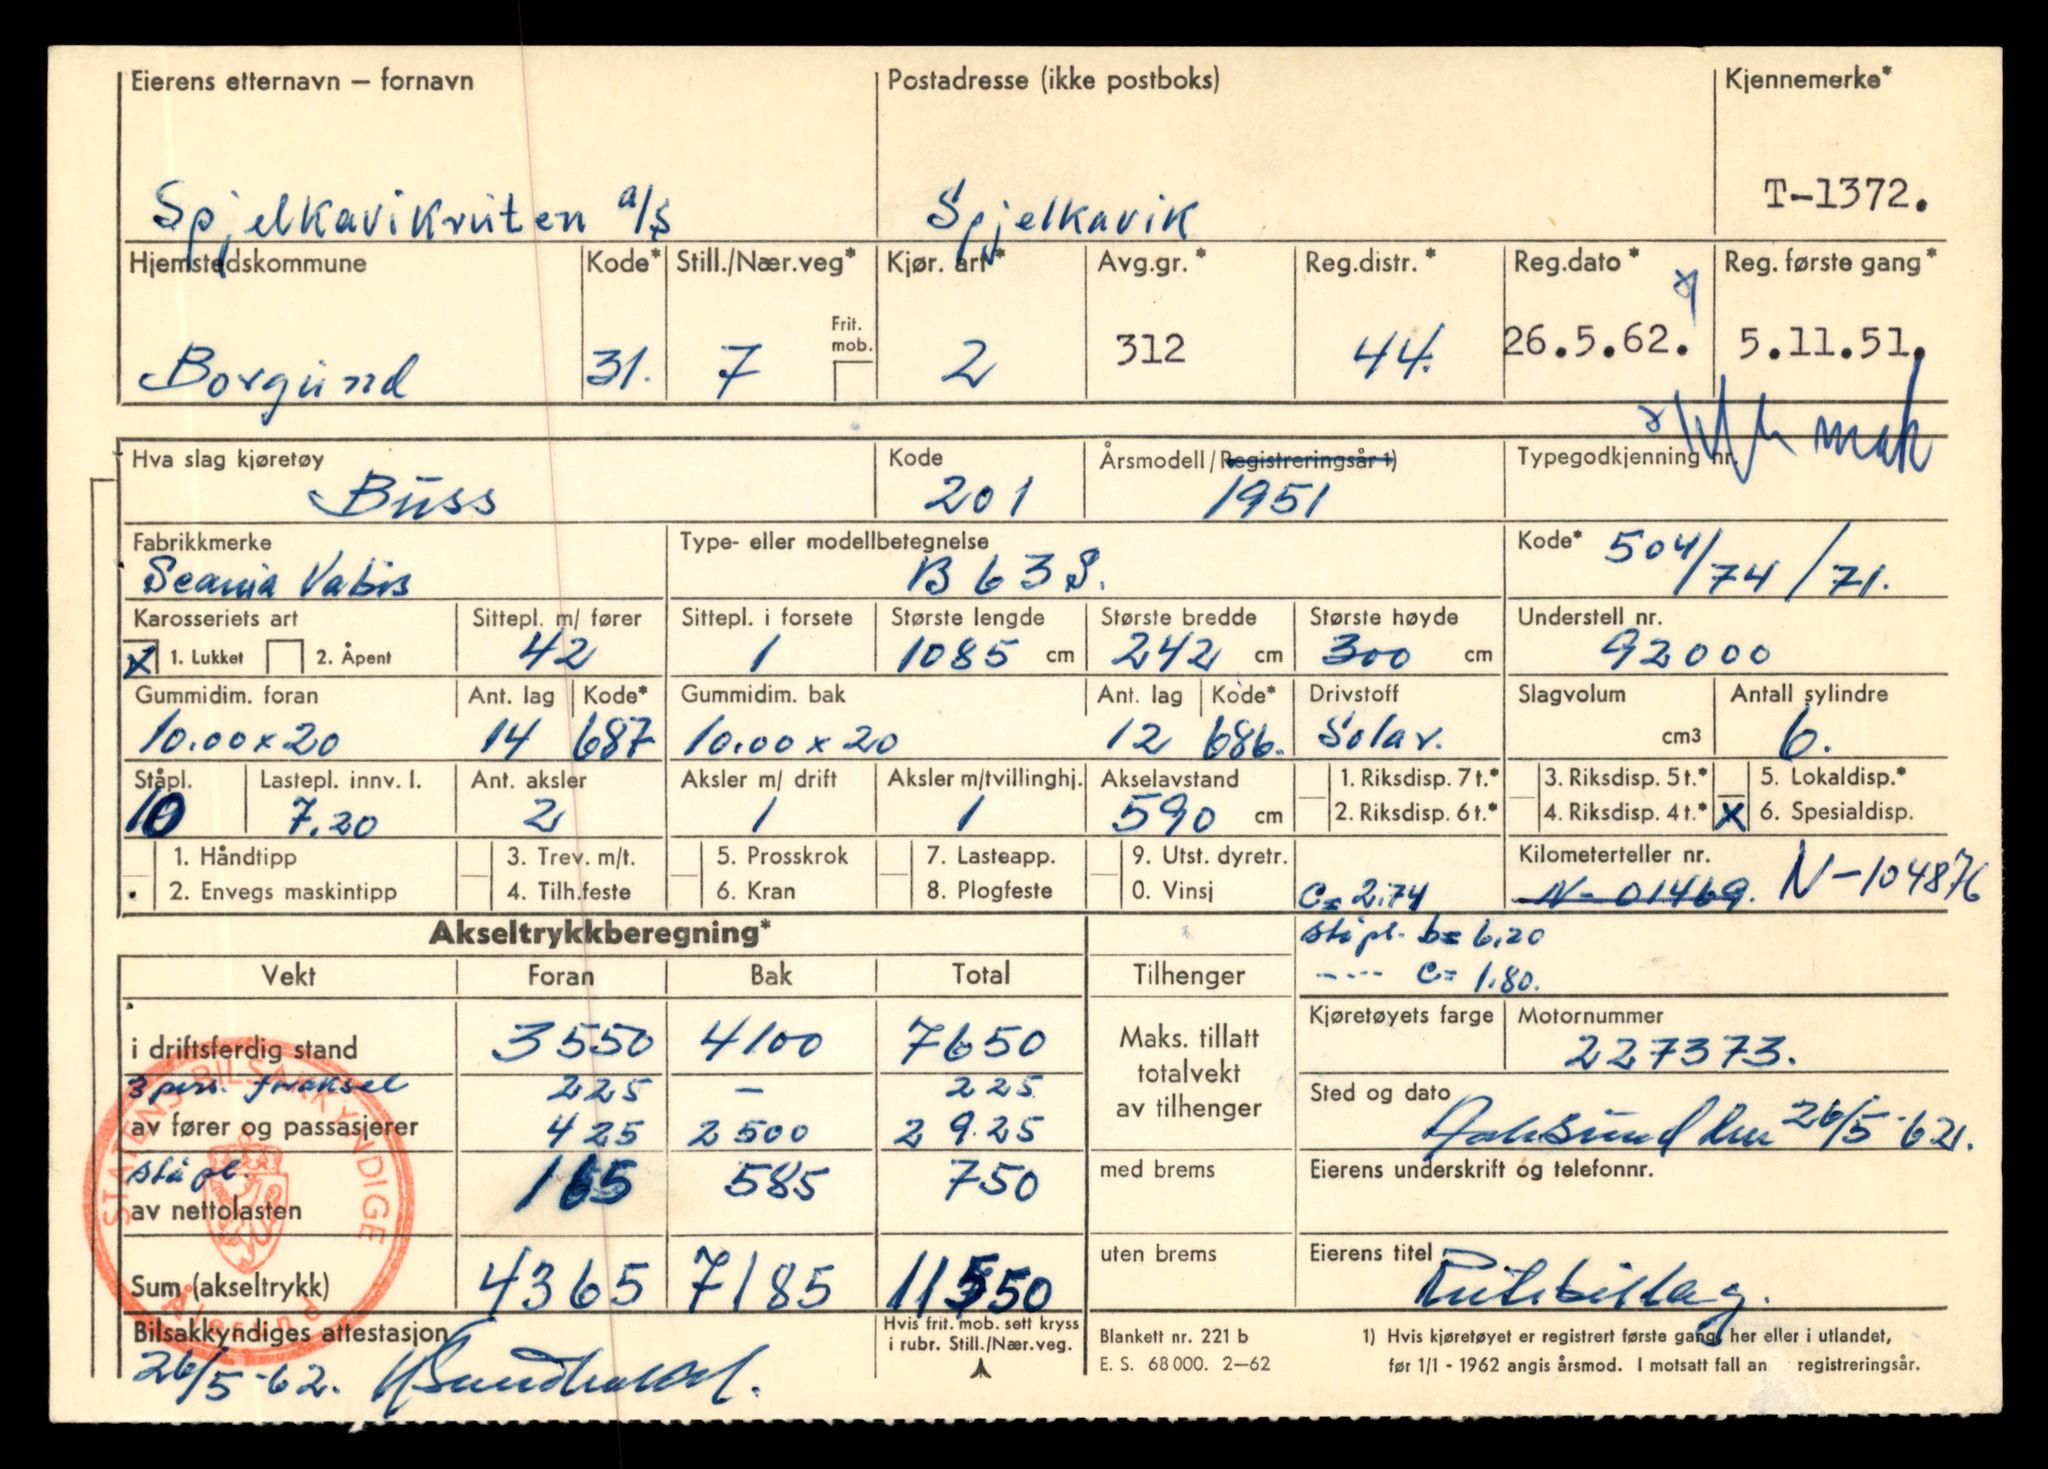 Eierens etternavn — fornavn Postadresse (ikke postboks) Kjennemerke*
Spjelkavikruten a/s Spjelkavik T-1372.
Hjemstedskommune Kode* Still./Nær.veg* Kjør. art* Avg.gr.* Reg.distr.* Reg.dato* Reg. første gang*
Frit. mob.
Borgund 31. 7 2 312 44. 26.5.62. 5.11.51.
Hva slag kjøretøy Kode Årsmodell/Registreringsår 1) Typegodkjenning nr.
Buss 201 1951
Fabrikkmerke Type- eller modellbetegnelse Kode* 504/74/71.
Scania Vabis B 63 S.
Karosseriets art Sittepl. m/ fører Sittepl. i forsete Største lengde Største bredde Største høyde Understell nr.
x 1. Lukket 2. Åpent 42 1 1085 cm 242 cm 300 cm 92000
Gummidim. foran Ant. lag Kode* Gummidim. bak Ant. lag Kode* Drivstoff Slagvolum Antall sylindre
10.00 x 20 14 687 10.00 x 20 12 686. Solar. cm3 6.
Ståpl. Lastepl. innv. l. Ant. aksler Aksler m/ drift Aksler m/tvillinghj. Akselavstand 1. Riksdisp. 7 t.* 3. Riksdisp. 5 t.* 5. Lokaldisp.*
10 7.20 2 1 1 590 cm 2. Riksdisp. 6 t.* 4. Riksdisp. 4 t.* x 6. Spesialdisp.
1. Håndtipp 3. Trev. m/t. 5. Prosskrok 7. Lasteapp. 9. Utst. dyretr. Kilometerteller nr.
2. Envegs maskintipp 4. Tilh.feste 6. Kran 8. Plogfeste 0. Vinsj c= 2.74 N-01469. N-104876
Akseltrykkberegning* ståpl. b= 6.20
Vekt Foran Bak Total Tilhenger ---- c= 1.80.
i driftsferdig stand 3550 4100 7650 Kjøretøyets farge Motornummer
Maks. tillatt totalvekt av tilhenger 227373.
3 pers. foraksel 225 — 225 Sted og dato
av fører og passasjerer 425 2500 2925 26/5-62.
ståpl. 165 585 750 med brems Eierens underskrift og telefonnr.
av nettolasten
Sum (akseltrykk) 4365 7185 11550 uten brems Eierens titel
Rutebillag.
STATENS BILSAKKYNDIGE
Ålesund
Bilsakkyndiges attestasjon Hvis frit. mob. sett kryss i rubr. Still./Nær.veg. Blankett nr. 221 b 1) Hvis kjøretøyet er registrert første gang, her eller i utlandet,
26/5-62. E. S. 68 000. 2—62 før 1/1 - 1962 angis årsmod. I motsatt fall an registreringsår.